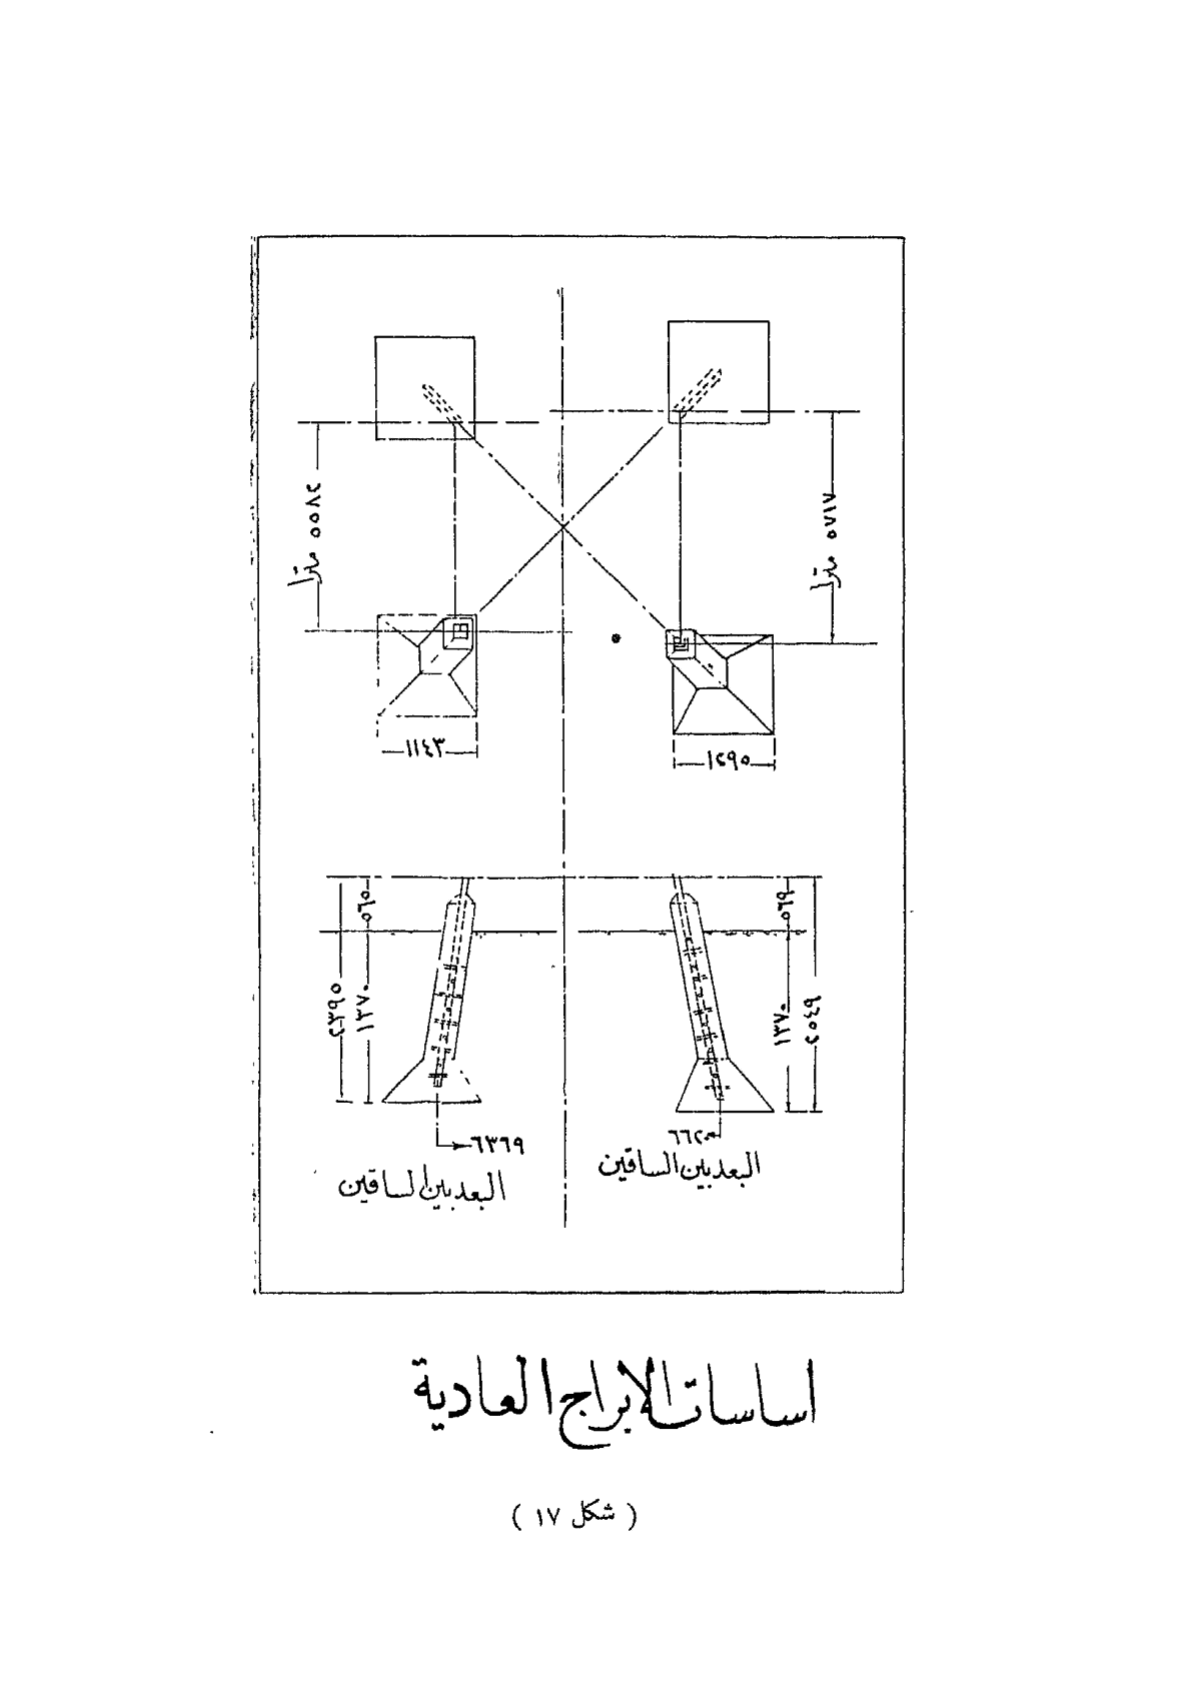 ٥٥٨٢ مترا
٥٧١٧ مترا
١١٤٣
١٢٩٥
٥٦٥
٥٦٩
٢٣٩٥
١٣٧٠
١٣٧٠
٢٥٤٩
٦٣٦٩
البعد بين الساقين
البعد بين الساقين
اساسات الابراج العادية
( شكل ١٧ )